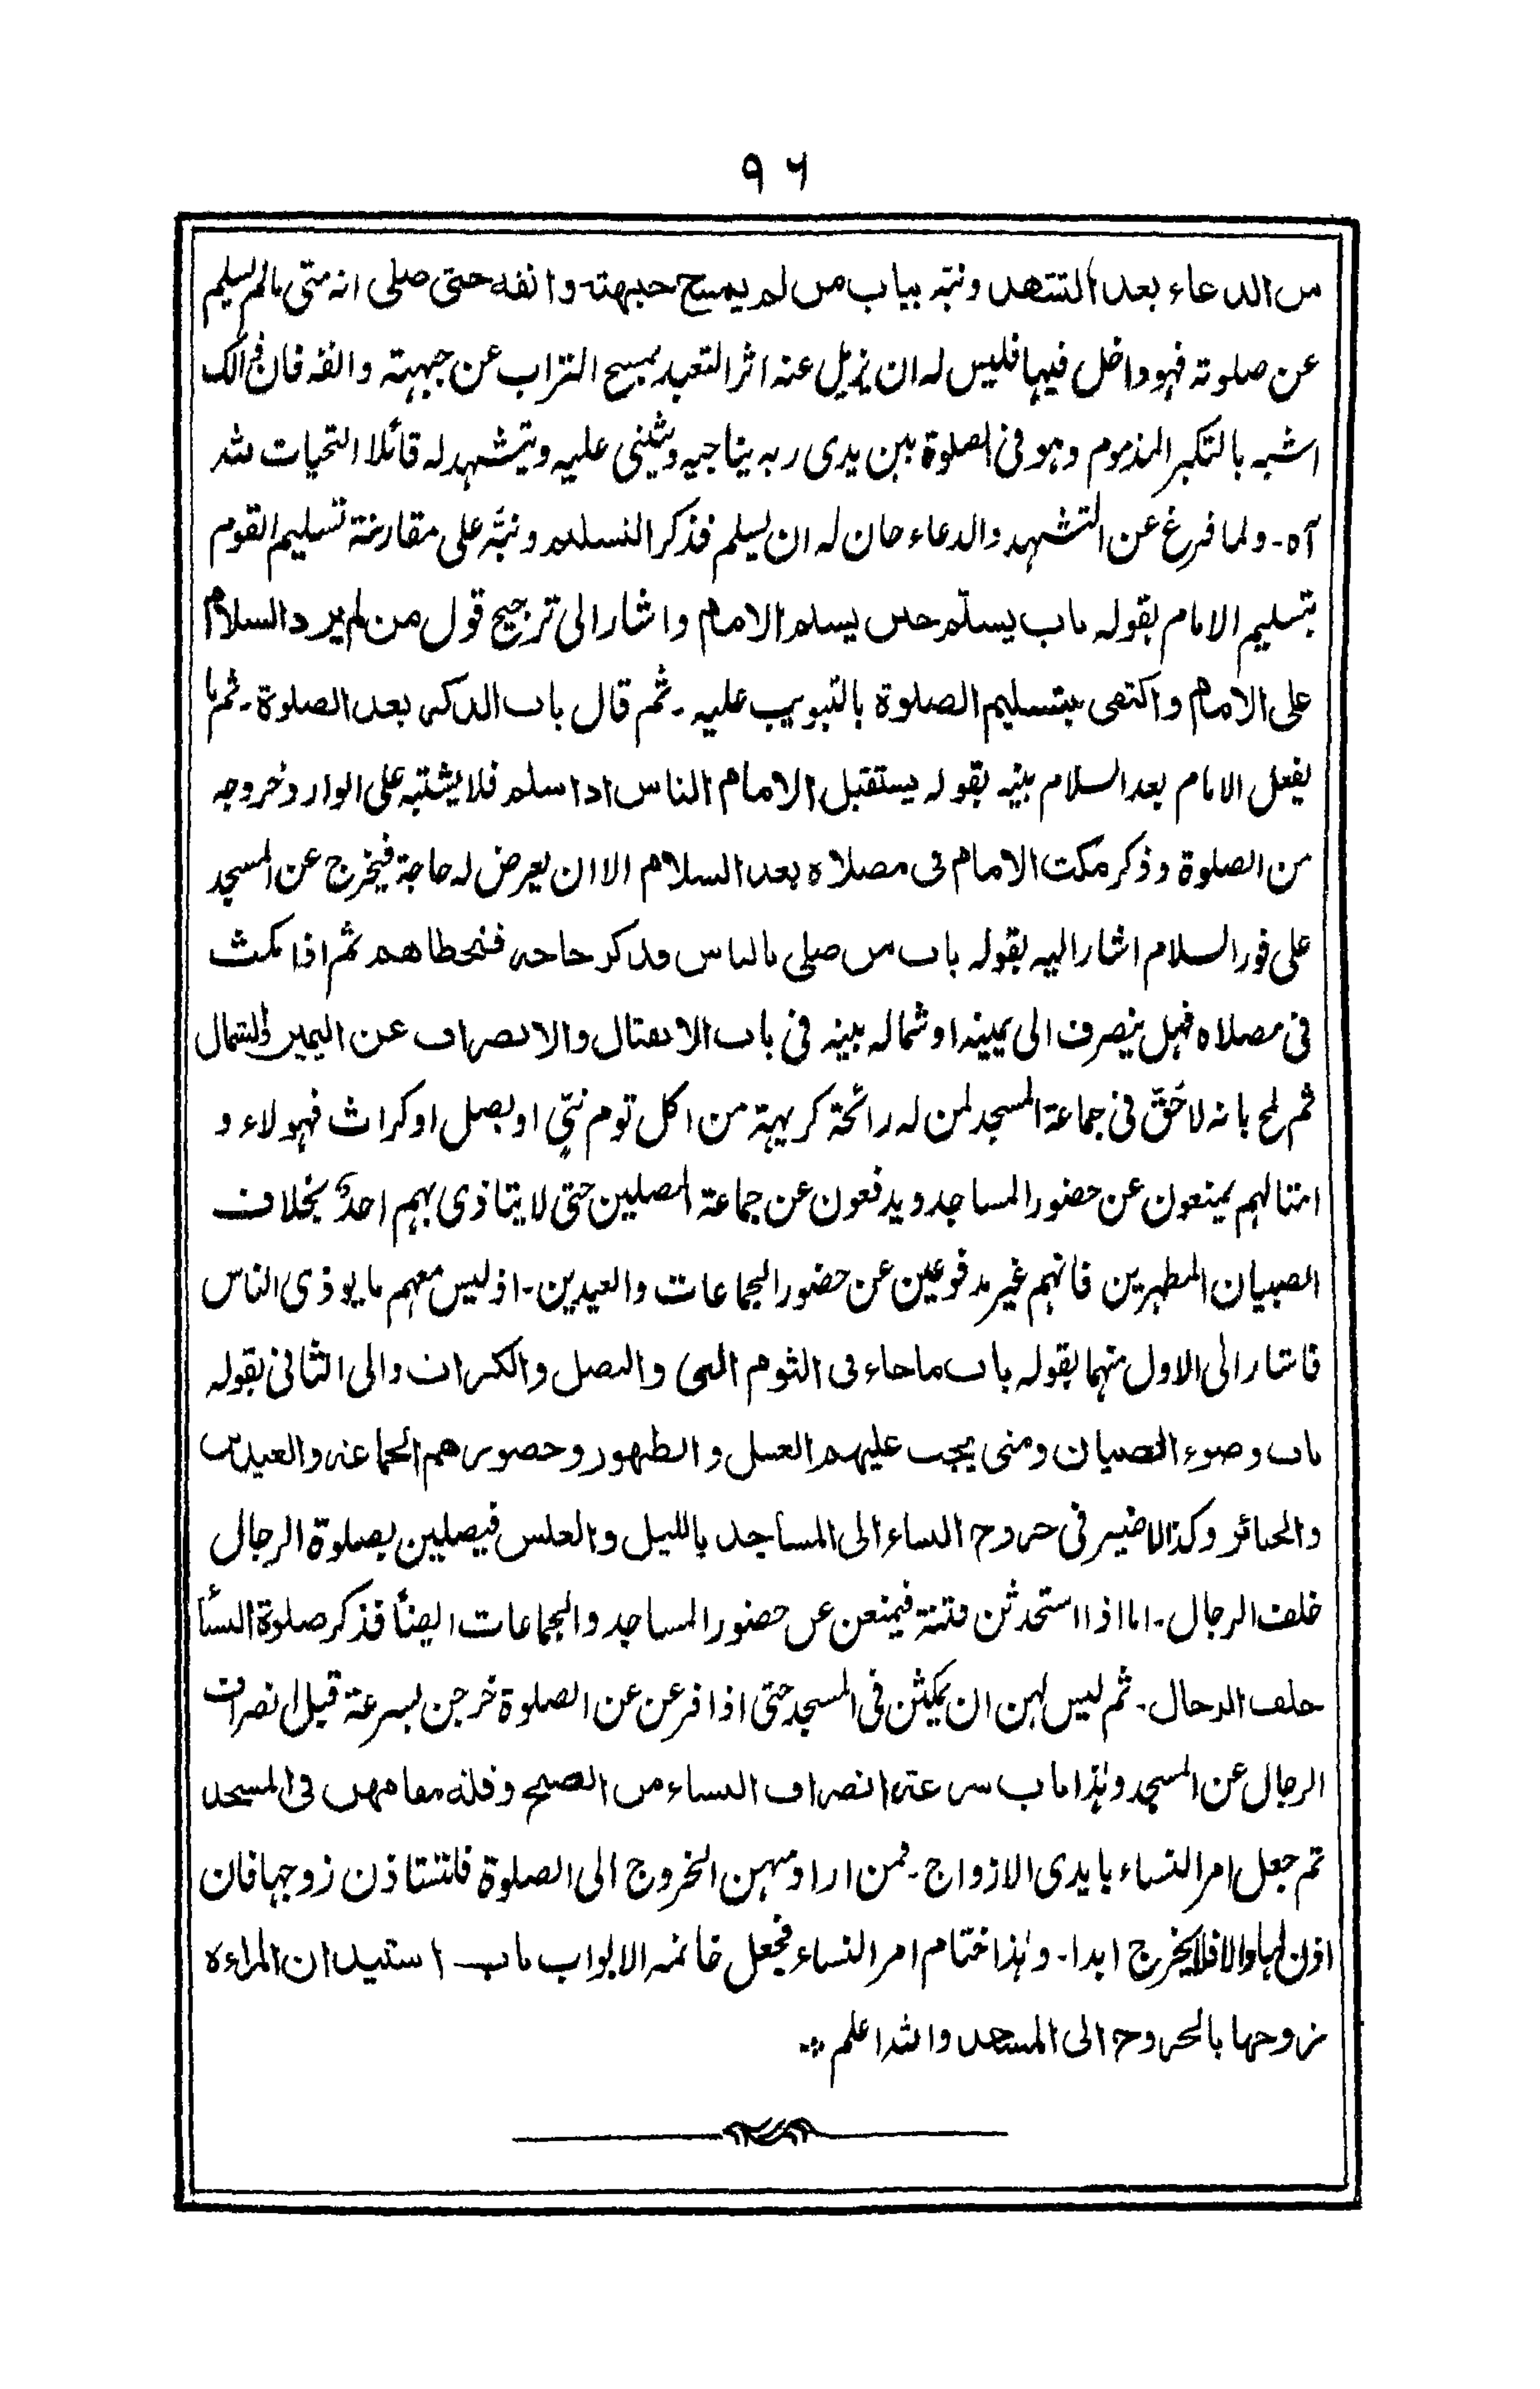 ٩٦
من الدعاء بعد التشهد ونبّه بباب من لم يمسح جبهته وانفه حتى صلى انه متى مالم يسلم
عن صلوته فهو داخل فيها فليس له ان يزيل عنه اثر التعبد بمسح التراب عن جبهته وانفه فان ذالك
اشبه بالتكبر المذموم وهو فى الصلوة بين يدى ربه يناجيه ويثنى عليه ويتشهد له قائلا التحيات لله
آه۔ ولما فرغ عن التشهد والدعاء حان له ان يسلم فذكر التسليم ونبّه على مقارنة تسليم القوم
بتسليم الامام بقوله باب يسلّم حين يسلم الامام واشار الى ترجيح قول من لم يرد السلام
على الامام واكتفى بتسليم الصلوة بالتبويب عليه۔ ثم قال باب الذكر بعد الصلوة۔ ثم ما
يفعل الامام بعد السلام بينه بقوله يستقبل الامام الناس اذا سلم فلا يشتبه على الوارد خروجه
من الصلوة وذكر مكث الامام فى مصلاه بعد السلام الا ان يعرض له حاجة فيخرج عن المسجد
على فور السلام اشار اليه بقوله باب من صلى بالناس فذكر حاجه فتخطاهم ثم اذا مكث
فى مصلاه فهل ينصرف الى يمينه او شماله بينه فى باب الانفتال والانصراف عن اليمين والشمال
ثم لمح بانه لا حَقّ فى جماعة المسجد لمن له رائحة كريهة من اكل توم نىّ او بصل او كراث فهولاء و
امثالهم يمنعون عن حضور المساجد ويدفعون عن جماعة المصلين حتى لا يتاذى بهم احدٌ بخلاف
الصبيان المطهرين فانهم غير مدفوعين عن حضور الجماعات والعيدين۔ اذ ليس معهم ما يوذى الناس
فاشار الى الاول منهما بقوله باب ما جاء فى الثوم النى والبصل والكراث والى الثانى بقوله
باب وضوء الصبيان ومتى يجب عليهم الغسل والطهور وحضورهم الجماعة والعيدين
والجنائز وكذا لا ضير فى خروج النساء الى المساجد بالليل والغلس فيصلين بصلوة الرجال
خلف الرجال۔ اما اذا استحدثن فتنة فيمنعن عن حضور المساجد والجماعات ايضاً فذكر صلوة النسأ
خلف الرجال۔ ثم ليس لهن ان يمكثن فى المسجد حتى اذا فرغن عن الصلوة خرجن بسرعة قبل انصراف
الرجال عن المسجد وهذا باب سرعته انصراف النساء من الصبح وقلة مقامهن فى المسجد
ثم جعل امر النساء بايدى الازواج۔ فمن اراد منهن الخروج الى الصلوة فلتستاذن زوجها فان
اذن لها والا فلا يخرج ابدا۔ وهذا ختام امر النساء فجعل خاتمه الابواب باب استيذان المراءة
زوجها بالخروج الى المسجد والله اعلم